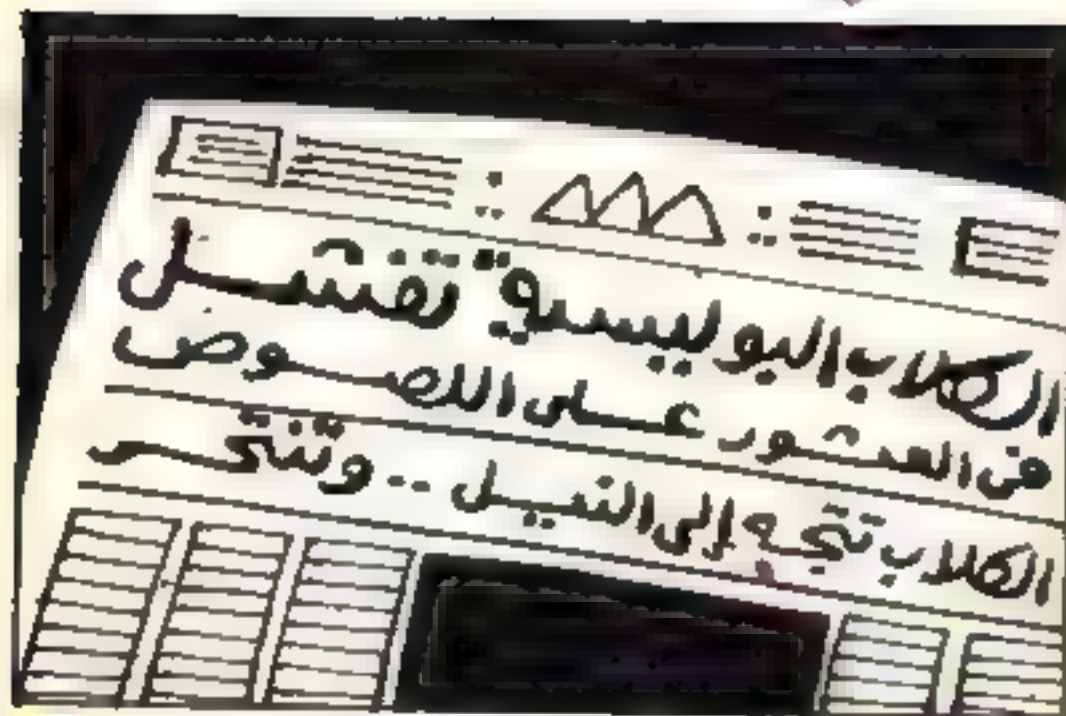 الكلاب البوليسية تفشل
في العثور على اللصوص
الكلاب تتجه إلى النيل .. وتنتحر